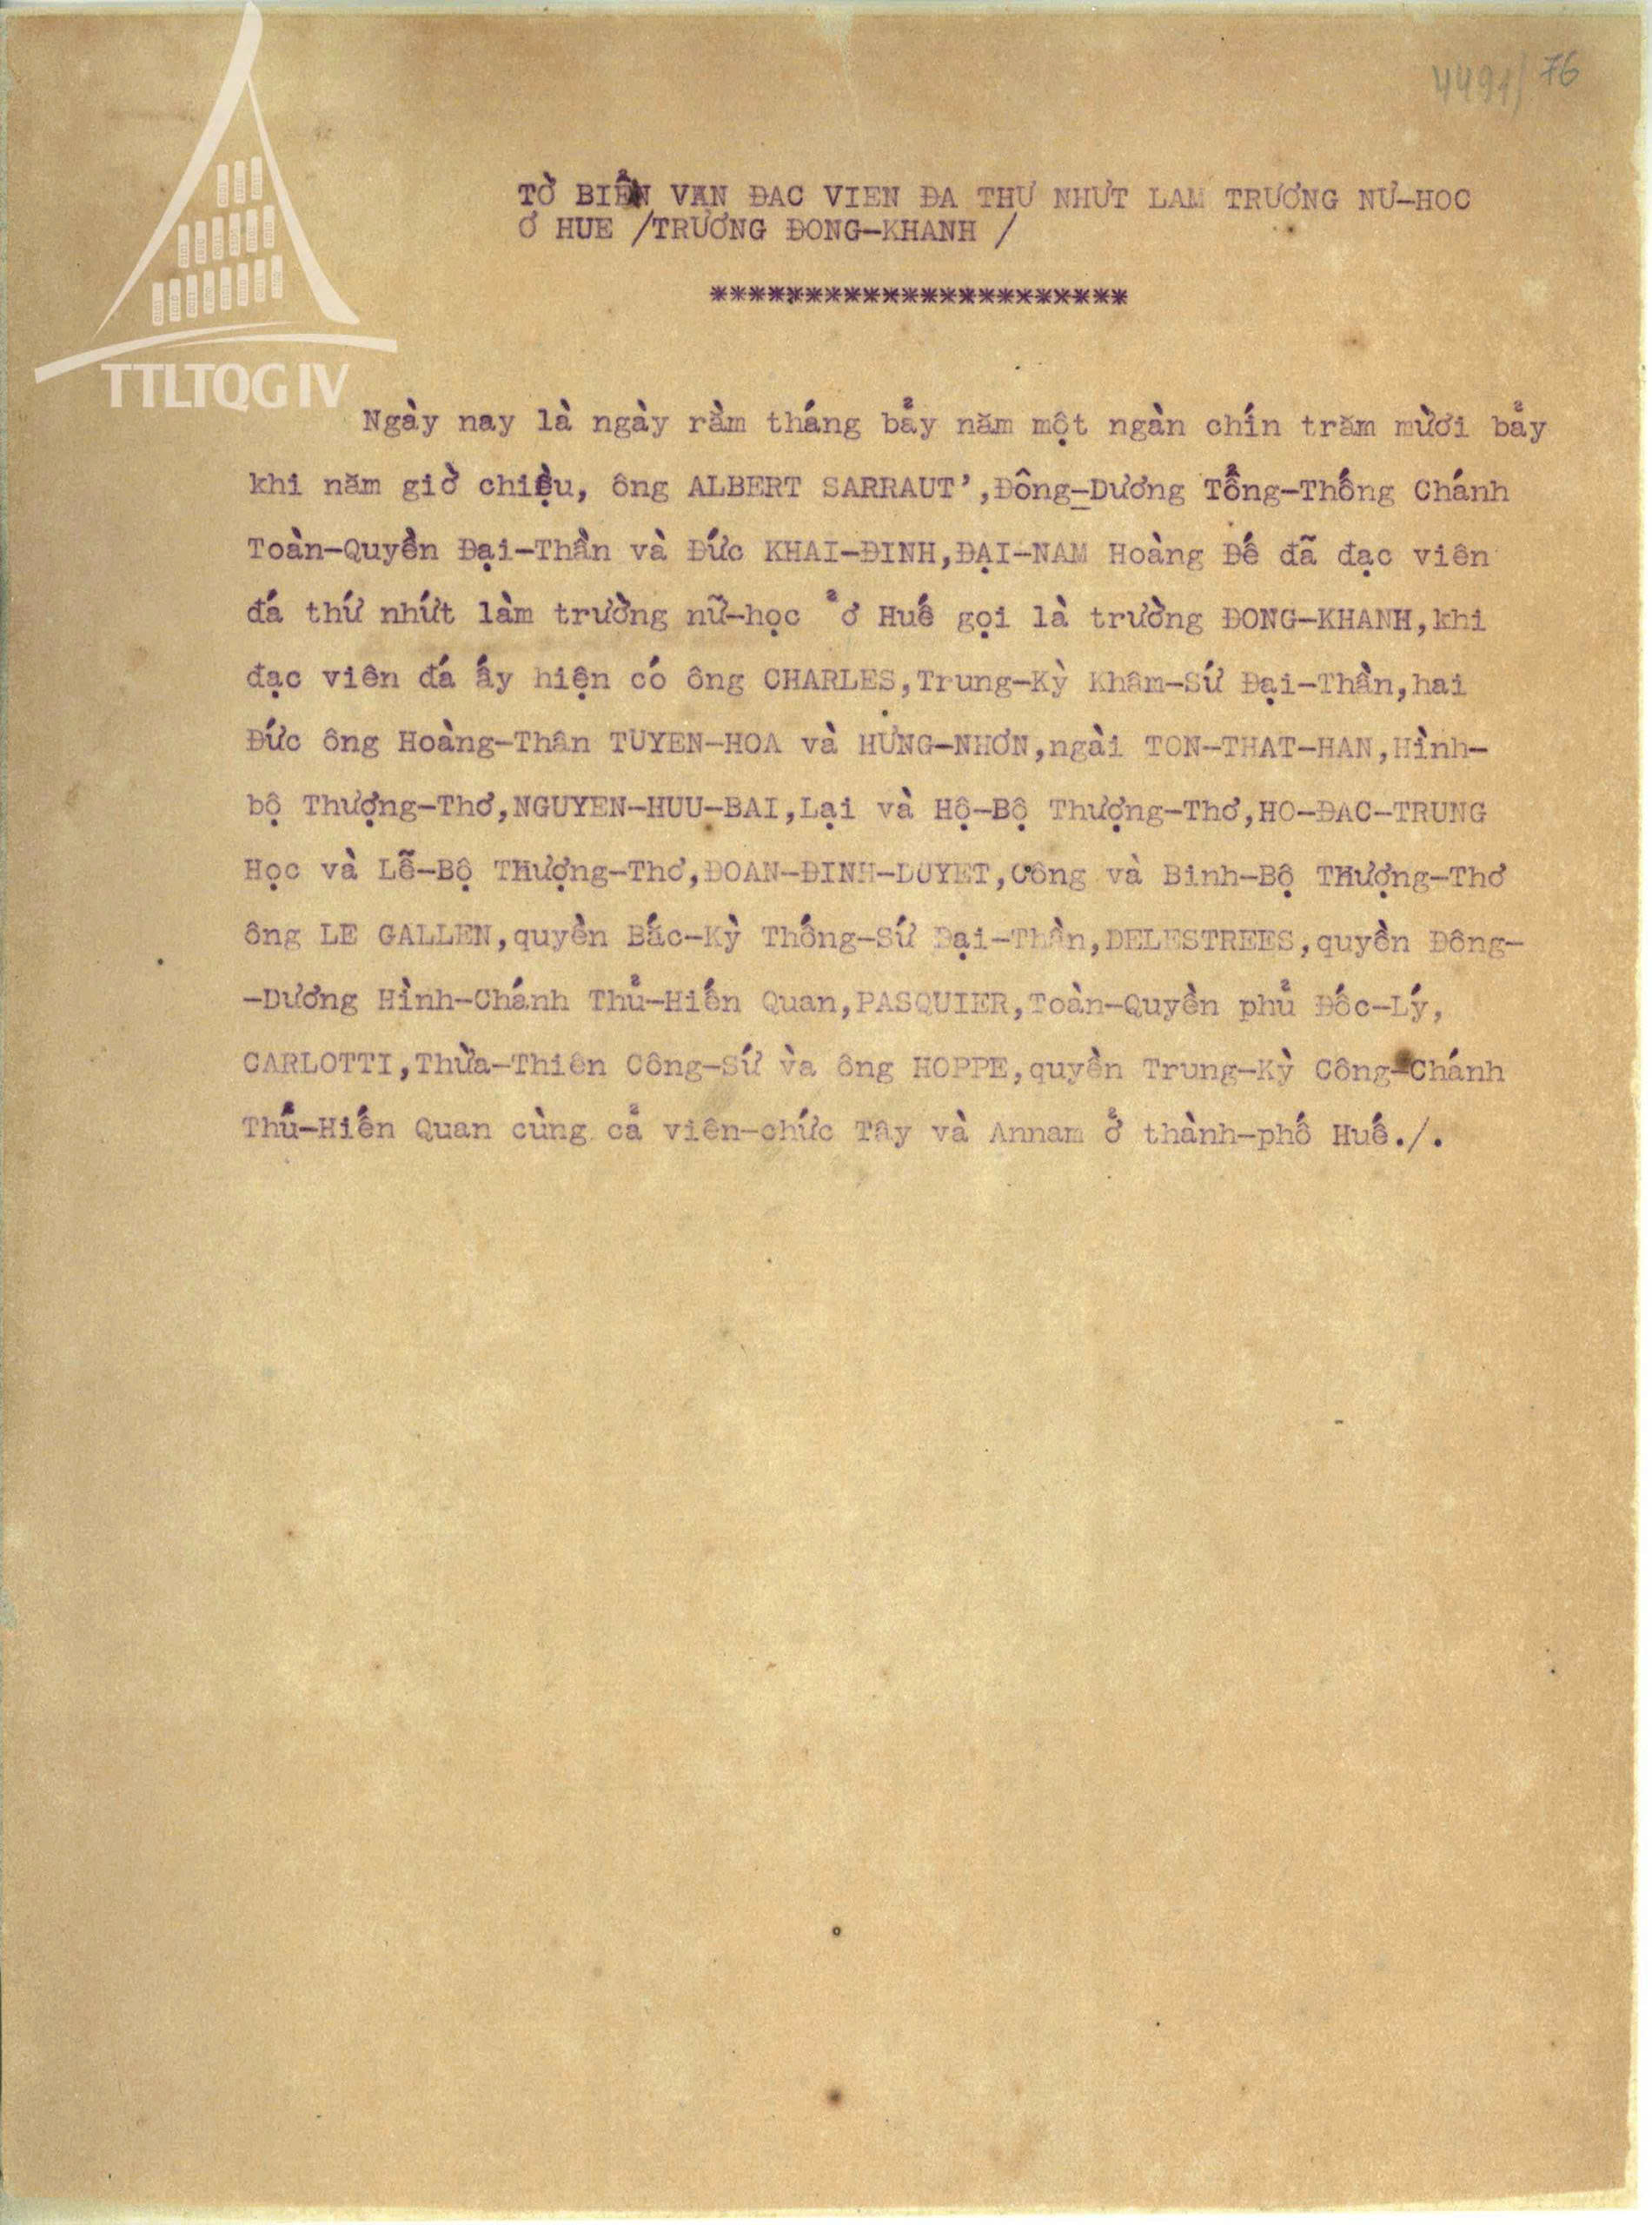 4491/ 76
TỜ BIỂN VAN ĐAC VIEN ĐA THƯ NHƯT LAM TRƯƠNG NƯ-HOC
Ơ HUE /TRƯƠNG ĐONG-KHANH /
**********************
TTLTQG IV
Ngày nay là ngày rằm tháng bảy năm một ngàn chín trăm mười bảy
khi năm giờ chiều, ông ALBERT SARRAUT',Đông-Dương Tổng-Thống Chánh
Toàn-Quyền Đại-Thần và Đức KHAI-ĐINH,ĐẠI-NAM Hoàng Đế đã đạc viên
đá thứ nhứt làm trường nữ-học ở Huế gọi là trường ĐONG-KHANH,khi
đạc viên đá ấy hiện có ông CHARLES,Trung-Kỳ Khâm-Sứ Đại-Thần,hai
Đức ông Hoàng-Thân TUYEN-HOA và HƯNG-NHƠN,ngài TON-THAT-HAN,Hình-
bộ Thượng-Thơ,NGUYEN-HUU-BAI,Lại và Hộ-Bộ Thượng-Thơ,HO-ĐAC-TRUNG
Học và Lễ-Bộ Thượng-Thơ,ĐOAN-ĐINH-DUYET,Công và Binh-Bộ Thượng-Thơ
ông LE GALLEN,quyền Bắc-Kỳ Thống-Sứ Đại-Thần,DELESTREES,quyền Đông-
-Dương Hình-Chánh Thủ-Hiến Quan,PASQUIER,Toàn-Quyền phủ Đốc-Lý,
CARLOTTI,Thừa-Thiên Công-Sứ và ông HOPPE,quyền Trung-Kỳ Công-Chánh
Thủ-Hiến Quan cùng cả viên-chức Tây và Annam ở thành-phố Huế./.